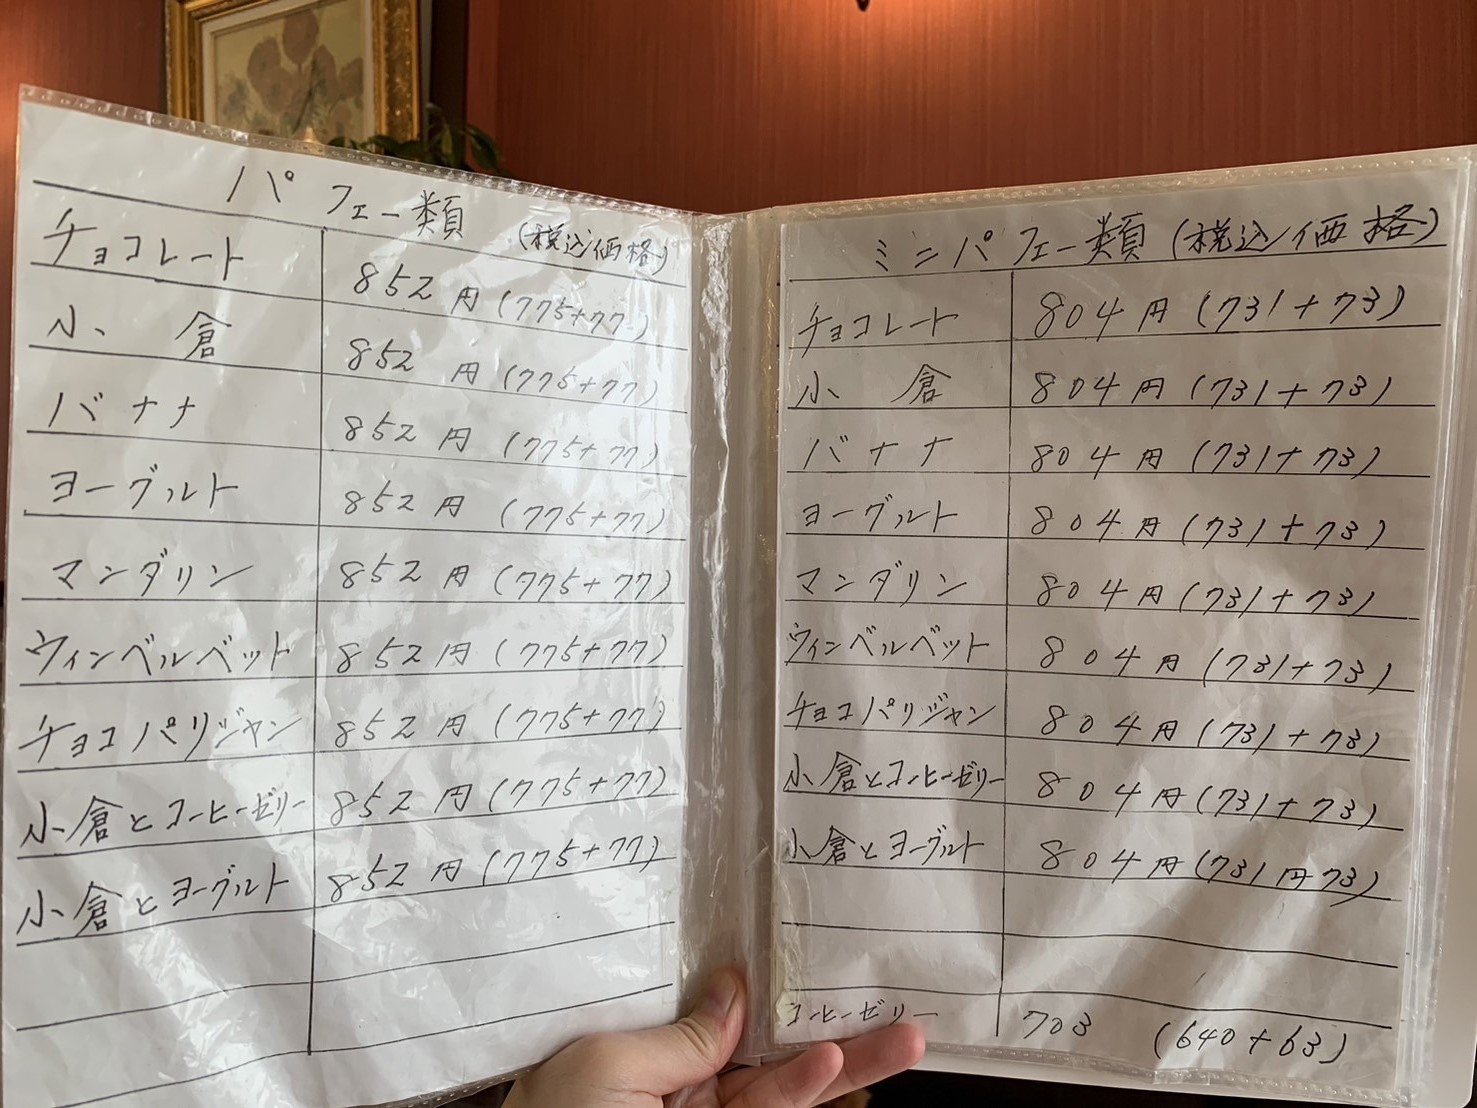 パフェー類
(税込価格)
チョコレート 852円(775+77)
小倉 852円(775+77)
バナナ 852円(775+77)
ヨーグルト 852円(775+77)
マンダリン 852円(775+77)
ウィンベルベット 852円(775+77)
チョコパリジャン 852円(775+77)
小倉とコーヒーゼリー 852円(775+77)
小倉とヨーグルト 852円(775+77)
ミニパフェー類(税込価格)
チョコレート 804円(731+73)
小倉 804円(731+73)
バナナ 804円(731+73)
ヨーグルト 804円(731+73)
マンダリン 804円(731+73)
ウィンベルベット 804円(731+73)
チョコパリジャン 804円(731+73)
小倉とコーヒーゼリー 804円(731+73)
小倉とヨーグルト 804円(731円73)
コーヒーゼリー 703 (640+63)